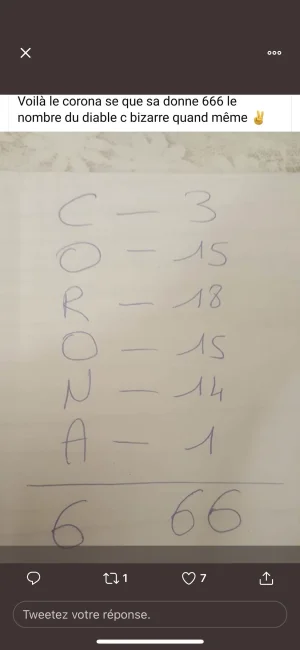 Voilà le corona se que sa donne 666 le
nombre du diable c bizarre quand même ✌️
C — 3
O — 15
R — 18
O — 15
N — 14
A — 1
6 66
1
7
Tweetez votre réponse.